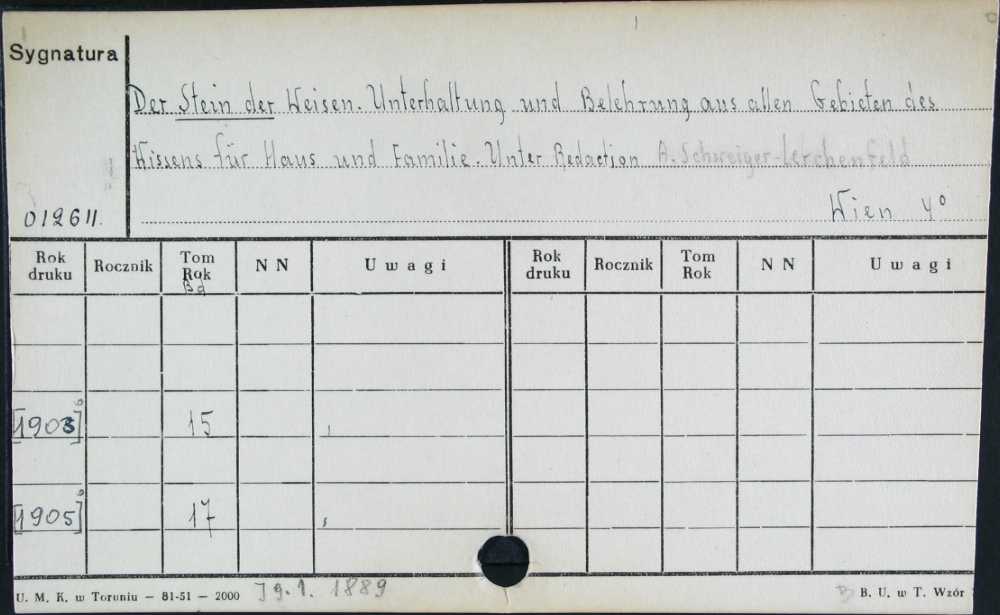 Sygnatura
Der Stein der Weisen. Unterhaltung und Belehrung aus allen Gebieten des
Wissens für Haus und Familie. Unter Redaction A. Schweiger-Lerchenfeld
012611. Wien 4°
Rok druku Rocznik Tom Rok Bd N N Uwagi Rok druku Rocznik Tom Rok N N Uwagi
[1903] 15
[1905] 17
U. M. K. w Toruniu — 81-51 — 2000 Jg. 1. 1889 B. U. w T. Wzór